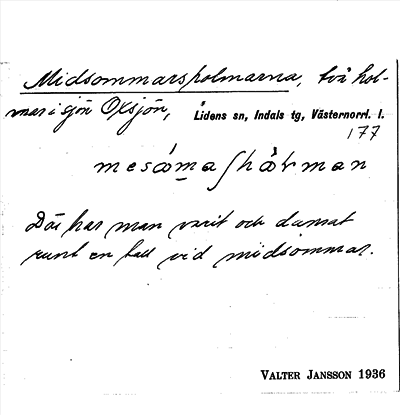 Midsommarsholmarna, två hol-
mar i sjön Oxsjön, Lidens sn, Indals tg, Västernorrl. l.
177
Där har man varit och dansat
runt en tall vid midsommar.
VALTER JANSSON 1936